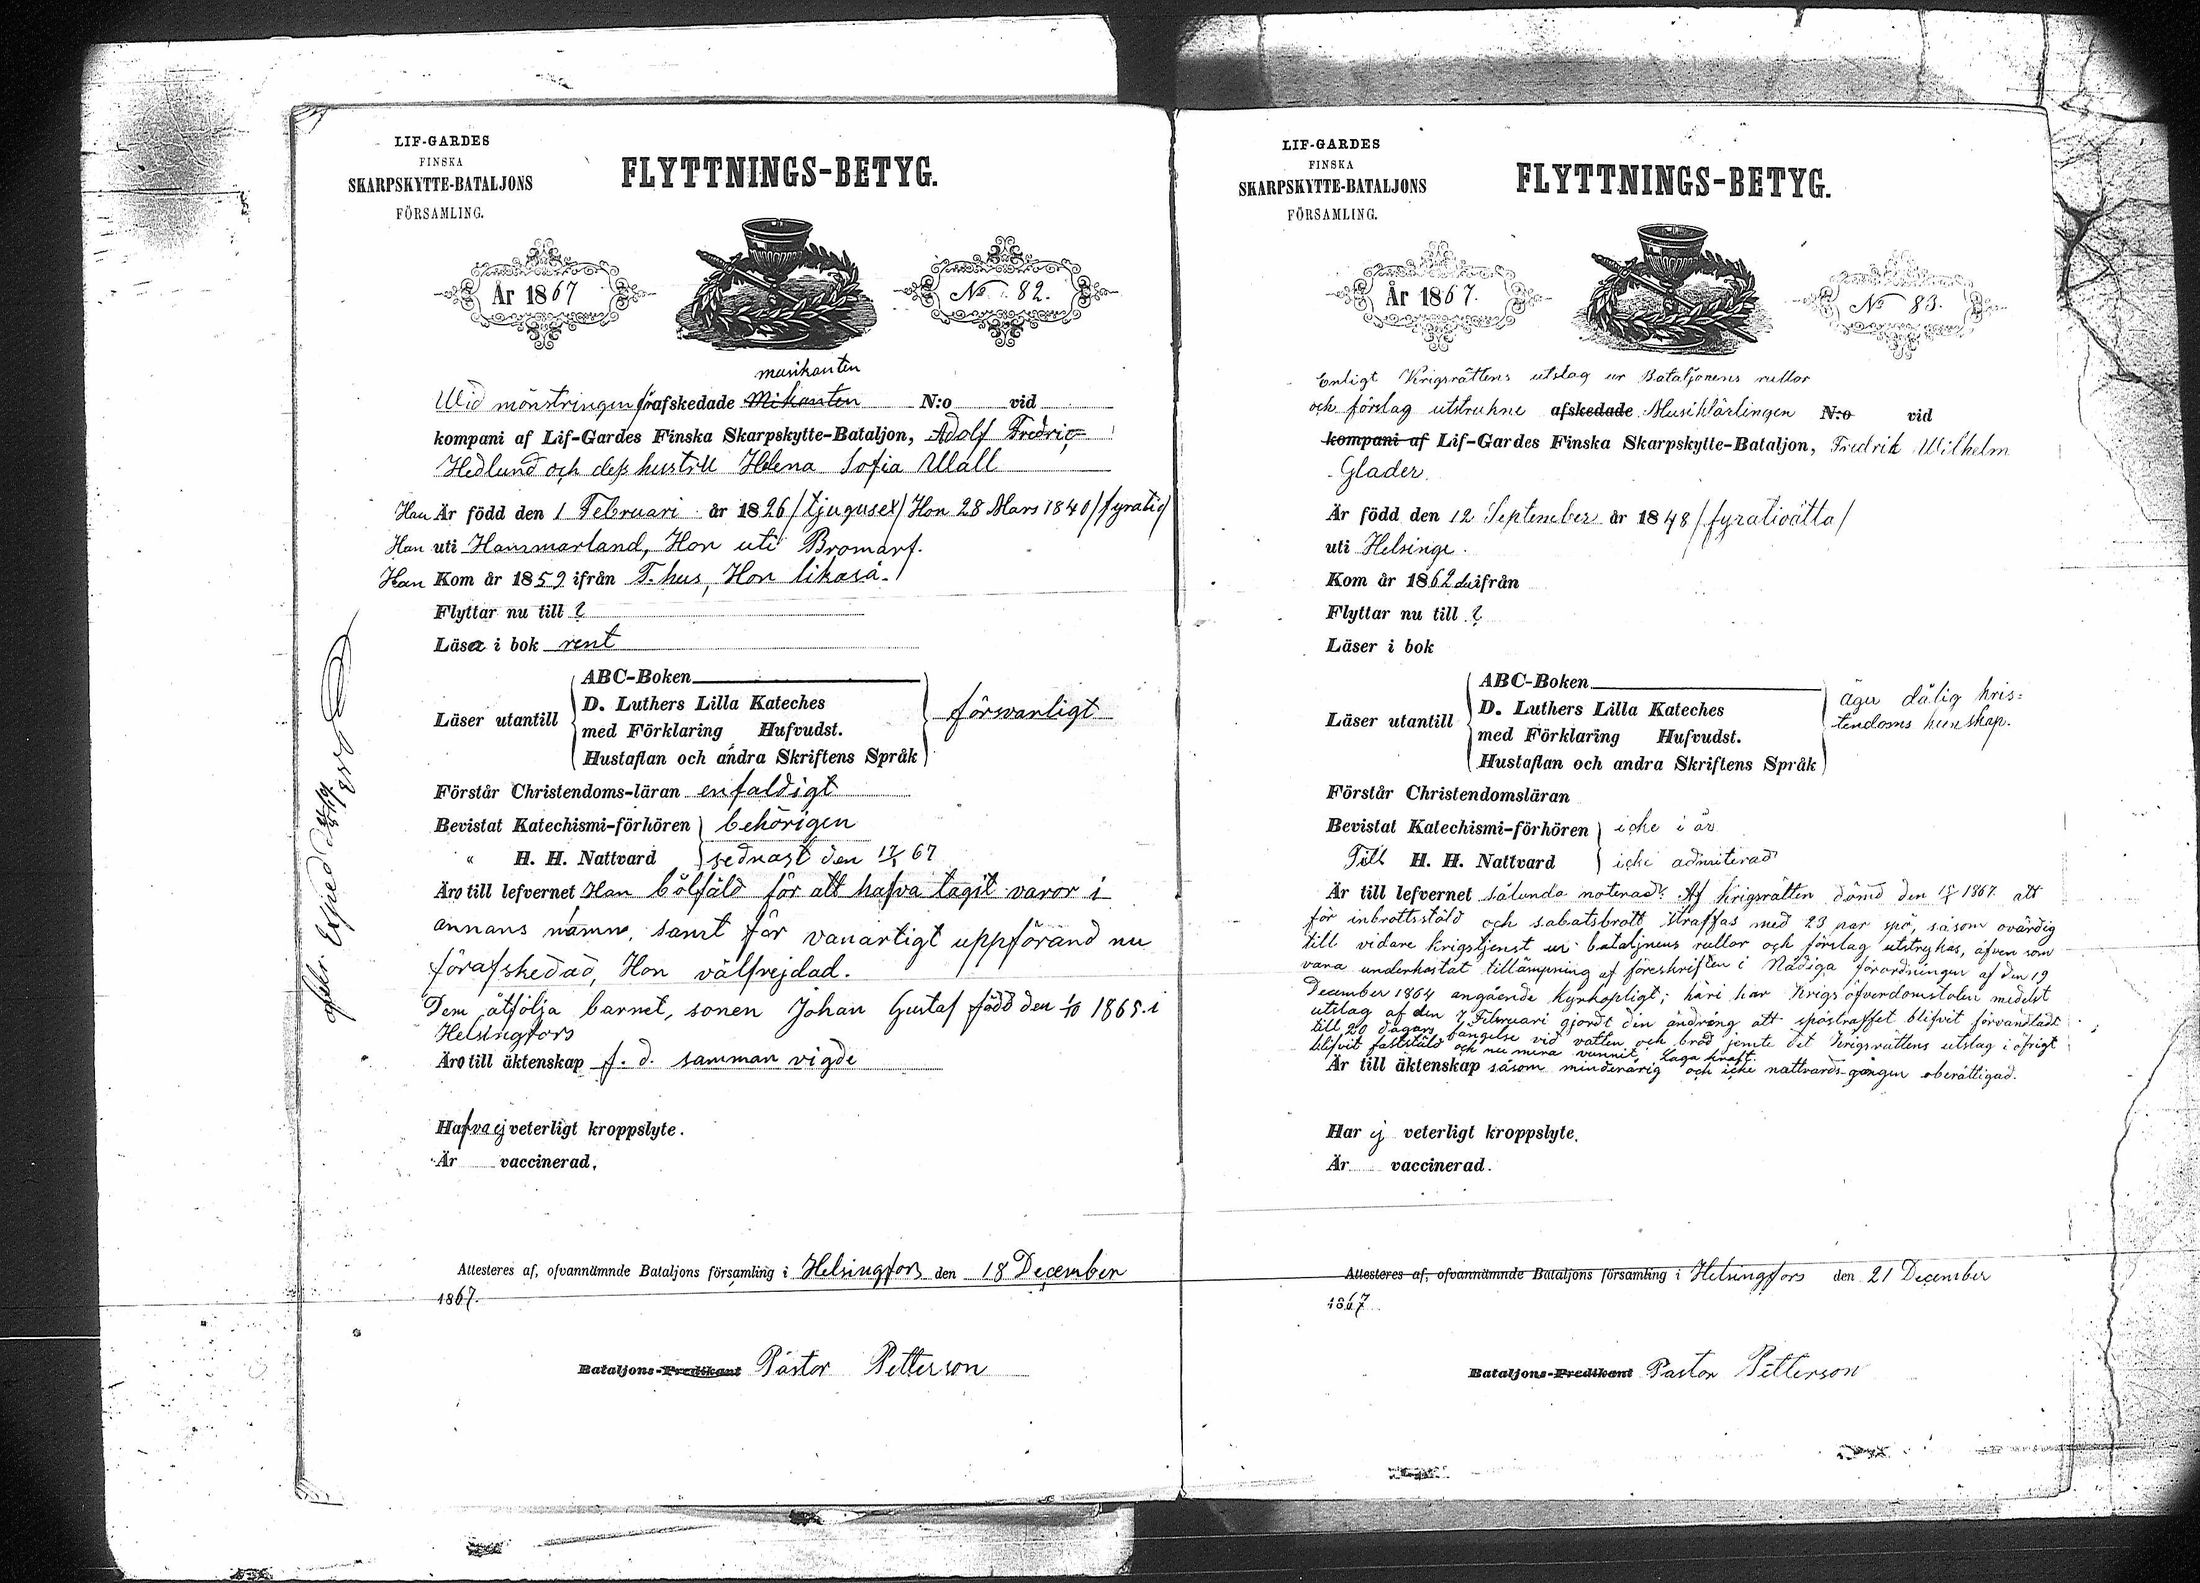 LIF-GARDES
FINSKA
SKARPSKYTTE-BATALJONS
FÖRSAMLING.
FLYTTNINGS-BETYG.
År 1867
No 82.
musikanten
Wid mönstringen förafskedade Mikanten N:o vid
kompani af Lif-Gardes Finska Skarpskytte-Bataljon, Adolf Fredric
Hedlund och dess hustru Helena Sofia Wall
Han Är född den 1 Februari år 1826 /tjugusex/ Hon 28 Mars 1840 /fyratio/
Han uti Hammarland, Hon uti Bromarf.
Han Kom år 1859 ifrån T. hus, Hon likaså.
Flyttar nu till ?
Läsa i bok rent
ABC-Boken
D. Luthers Lilla Kateches
med Förklaring Hufvudst.
Hustaflan och andra Skriftens Språk
Läser utantill
försvarligt
Förstår Christendoms-läran enfaldigt
Bevistat Katechismi-förhören behörigen
" H. H. Nattvard sednast den 67
Äro till lefvernet Han bötfäld för att hafva tagit varor i
annans namn, samt för vanartigt uppförand nu
förafskedad, Hon välfrejdad.
Dem åtfölja barnet, sonen Johan Gustaf född den 1/10 1865 i
Helsingfors
Äro till äktenskap f. d. samman vigde
Hafva ej veterligt kroppslyte.
Är vaccinerad.
Attesteres af, ofvannämnde Bataljons församling i Helsingfors den 18 December
1867.
Bataljons-Predikant Pastor Petterson
LIF-GARDES
FINSKA
SKARPSKYTTE-BATALJONS
FÖRSAMLING.
FLYTTNINGS-BETYG.
År 1867.
No 83.
Enligt Krigsrättens utslag ur Bataljonens rullor
och förslag utstrukne afskedade Musiklärlingen N:o vid
kompani af Lif-Gardes Finska Skarpskytte-Bataljon, Fredrik Wilhelm
Glader.
Är född den 12 September år 1848 /fyratioåtta/
uti Helsinge.
Kom år 1862 därifrån
Flyttar nu till ?
Läser i bok
ABC-Boken
D. Luthers Lilla Kateches
med Förklaring Hufvudst.
Hustaflan och andra Skriftens Språk
Läser utantill
äger dålig kris=
tendoms kunskap.
Förstår Christendomsläran
Bevistat Katechismi-förhören icke i år
Till H. H. Nattvard icke admiterad
Är till lefvernet sålunda noterad: Af Krigsrätten dömd den 1867 att
för inbrottsstöld och sabatsbrott straffas med 23 par spö, såsom ovärdig
till vidare krigstjenst ur bataljnens rullor och förslag utstrykas, äfven som
vara underkastat tillämpning af föreskriften i Nådiga förordningen af den 19
December 1864 angående Kyrkopligt; häri har Krigsöfverdomstolen medelst
utslag af den 7 Februari gjordt den ändring att spöstraffet blifvit förvandladt
till 20 dagars fängelse vid vatten och bröd jemte det Krigsrättens utslag i öfrigt
blifvit fastställd och nu mera vunnit Laga kraft.
Är till äktenskap såsom minderårig och icke nattvards-gången oberättigad.
Har ej veterligt kroppslyte.
Är vaccinerad.
Attesteres af, ofvannämnde Bataljons församling i Helsingfors den 21 December
1867
Bataljons-Predikant Pastor Petterson